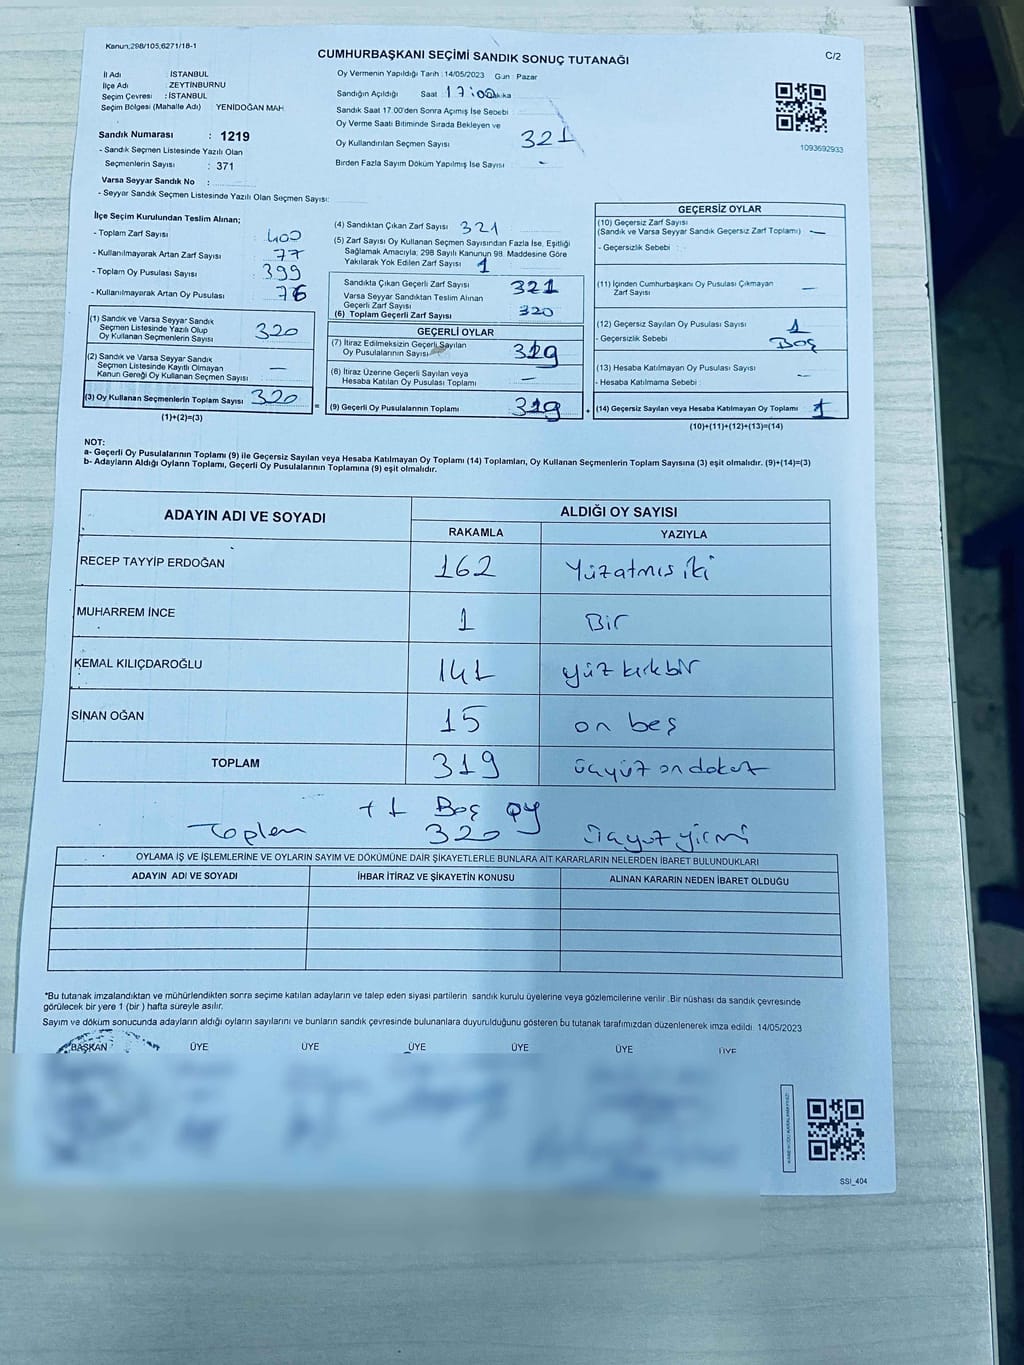 Kanun,298/105,6271/18-1
CUMHURBAŞKANI SEÇİMİ SANDIK SONUÇ TUTANAĞI
C/2
İl Adı : İSTANBUL
İlçe Adı : ZEYTİNBURNU
Seçim Çevresi : İSTANBUL
Seçim Bölgesi (Mahalle Adı) YENİDOĞAN MAH
Sandık Numarası : 1219
- Sandık Seçmen Listesinde Yazılı Olan
Seçmenlerin Sayısı : 371
Varsa Seyyar Sandık No :
- Seyyar Sandık Seçmen Listesinde Yazılı Olan Seçmen Sayısı:
Oy Vermenin Yapıldığı Tarih : 14/05/2023 Gün : Pazar
Sandığın Açıldığı Saat 17:00
Sandık Saat 17.00'den Sonra Açımış İse Sebebi
Oy Verme Saati Bitiminde Sırada Bekleyen ve
Oy Kullandırılan Seçmen Sayısı 321
Birden Fazla Sayım Döküm Yapılmış İse Sayısı -
1093692933
İlçe Seçim Kurulundan Teslim Alınan;
- Toplam Zarf Sayısı 400
- Kullanılmayarak Artan Zarf Sayısı 77
- Toplam Oy Pusulası Sayısı 399
- Kullanılmayarak Artan Oy Pusulası 76
(1) Sandık ve Varsa Seyyar Sandık
Seçmen Listesinde Yazılı Olup
Oy Kullanan Seçmenlerin Sayısı 320
(2) Sandık ve Varsa Seyyar Sandık
Seçmen Listesinde Kayıtlı Olmayan
Kanun Gereği Oy Kullanan Seçmen Sayısı —
(3) Oy Kullanan Seçmenlerin Toplam Sayısı 320
(1)+(2)=(3)
(4) Sandıktan Çıkan Zarf Sayısı 321
(5) Zarf Sayısı Oy Kullanan Seçmen Sayısından Fazla İse, Eşitliği
Sağlamak Amacıyla; 298 Sayılı Kanunun 98. Maddesine Göre
Yakılarak Yok Edilen Zarf Sayısı 1
Sandıkta Çıkan Geçerli Zarf Sayısı 321
Varsa Seyyar Sandıktan Teslim Alınan
Geçerli Zarf Sayısı
(6) Toplam Geçerli Zarf Sayısı 320
GEÇERLİ OYLAR
(7) İtiraz Edilmeksizin Geçerli Sayılan
Oy Pusulalarının Sayısı 319
(8) İtiraz Üzerine Geçerli Sayılan veya
Hesaba Katılan Oy Pusulası Toplamı —
(9) Geçerli Oy Pusulalarının Toplamı 319
GEÇERSİZ OYLAR
(10) Geçersiz Zarf Sayısı
(Sandık ve Varsa Seyyar Sandık Geçersiz Zarf Toplamı) —
- Geçersizlik Sebebi :
(11) İçinden Cumhurbaşkanı Oy Pusulası Çıkmayan
Zarf Sayısı —
(12) Geçersiz Sayılan Oy Pusulası Sayısı 1
- Geçersizlik Sebebi : Boş
(13) Hesaba Katılmayan Oy Pusulası Sayısı —
- Hesaba Katılmama Sebebi
(14) Geçersiz Sayılan veya Hesaba Katılmayan Oy Toplamı 1
(10)+(11)+(12)+(13)=(14)
NOT:
a- Geçerli Oy Pusulalarının Toplamı (9) ile Geçersiz Sayılan veya Hesaba Katılmayan Oy Toplamı (14) Toplamları, Oy Kullanan Seçmenlerin Toplam Sayısına (3) eşit olmalıdır. (9)+(14)=(3)
b- Adayların Aldığı Oyların Toplamı, Geçerli Oy Pusulalarının Toplamına (9) eşit olmalıdır.
ADAYIN ADI VE SOYADI ALDIĞI OY SAYISI
RAKAMLA YAZIYLA
RECEP TAYYİP ERDOĞAN 162 Yüzatmış iki
MUHARREM İNCE 1 Bir
KEMAL KILIÇDAROĞLU 141 yüz kırkbir
SİNAN OĞAN 15 on beş
TOPLAM 319 üçyüz on dokuz
+1 Boş oy
Toplam 320 üçyüz yirmi
OYLAMA İŞ VE İŞLEMLERİNE VE OYLARIN SAYIM VE DÖKÜMÜNE DAİR ŞİKAYETLERLE BUNLARA AİT KARARLARIN NELERDEN İBARET BULUNDUKLARI
ADAYIN ADI VE SOYADI İHBAR İTİRAZ VE ŞİKAYETİN KONUSU ALINAN KARARIN NEDEN İBARET OLDUĞU
*Bu tutanak imzalandıktan ve mühürlendikten sonra seçime katılan adayların ve talep eden siyasi partilerin sandık kurulu üyelerine veya gözlemcilerine verilir .Bir nüshası da sandık çevresinde
görülecek bir yere 1 (bir ) hafta süreyle asılır.
Sayım ve döküm sonucunda adayların aldığı oyların sayılarını ve bunların sandık çevresinde bulunanlara duyurulduğunu gösteren bu tutanak tarafımızdan düzenlenerek imza edildi. 14/05/2023
BAŞKAN ÜYE ÜYE ÜYE ÜYE ÜYE ÜYE
SSI_404